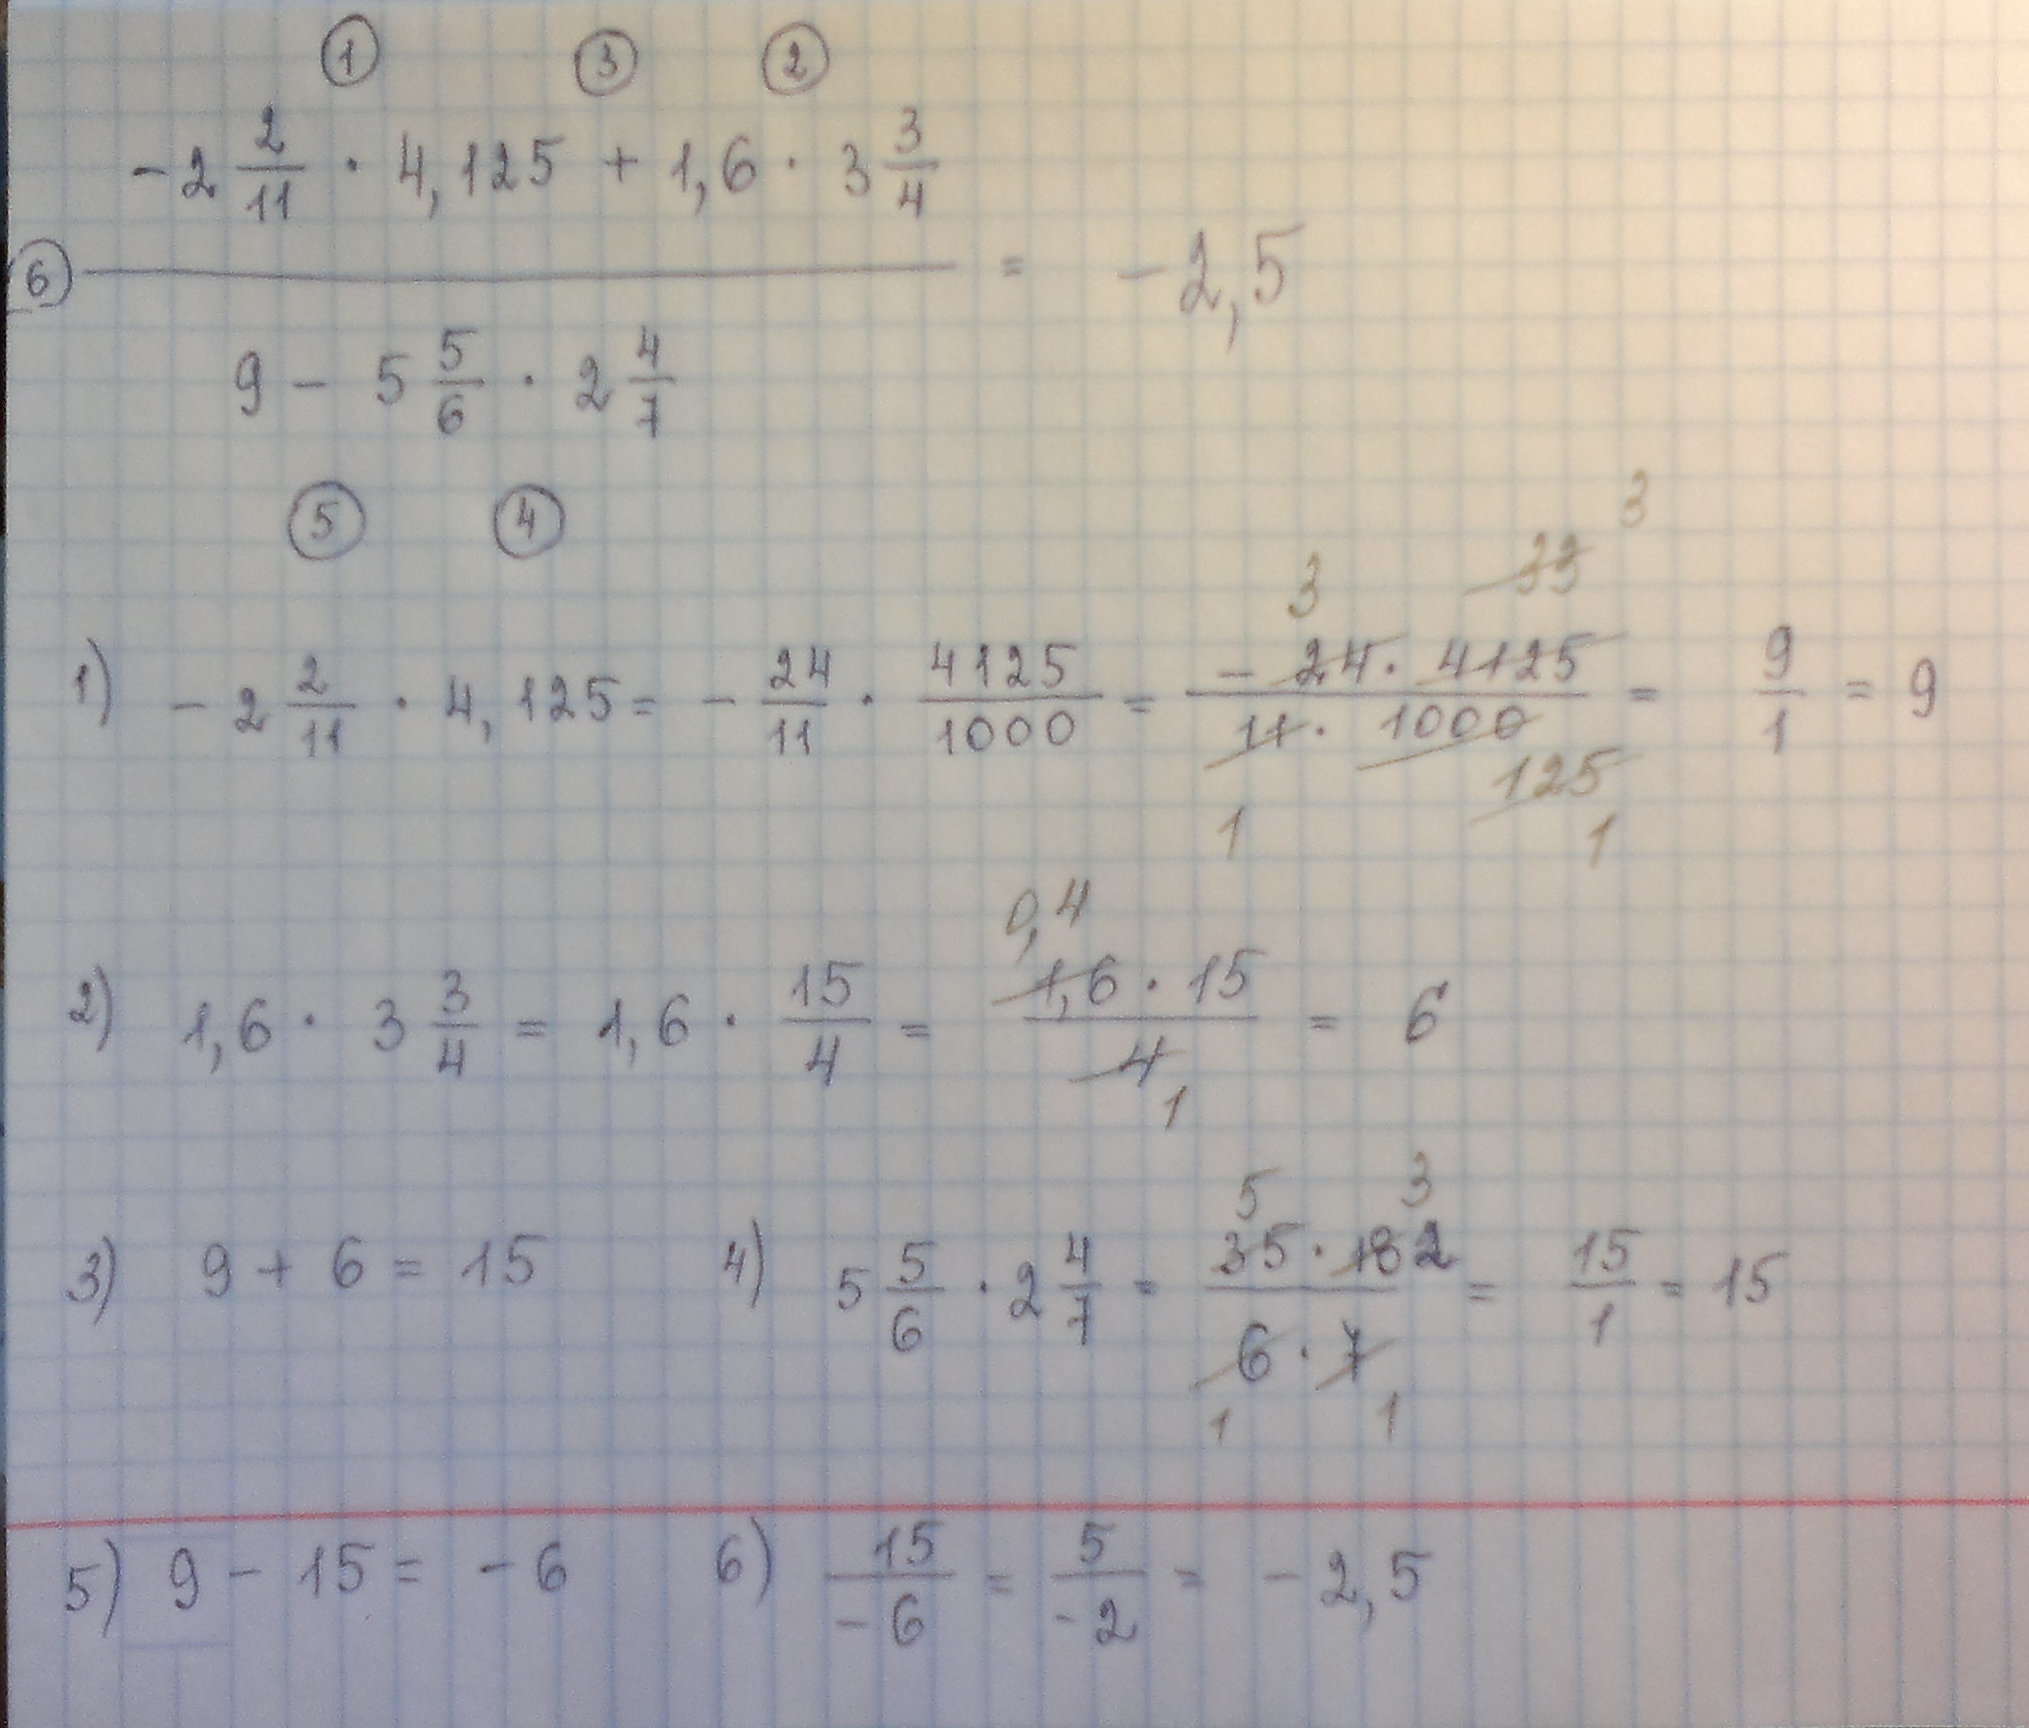 ① ③ ②
-2 2/11 · 4,125 + 1,6 · 3 3/4
⑥ ——— = -2,5
9 - 5 5/6 · 2 4/7
⑤ ④
3 33 3
1) -2 2/11 · 4,125 = - 24/11 · 4125/1000 = (-24 · 4125)/(11 · 1000) = 9/1 = 9
125
1 1
0,4
2) 1,6 · 3 3/4 = 1,6 · 15/4 = (1,6 · 15)/4 = 6
1
5 3
3) 9 + 6 = 15 4) 5 5/6 · 2 4/7 = (35 · 182)/(6 · 7) = 15/1 = 15
1 1
5) 9 - 15 = -6 6) 15/-6 = 5/-2 = -2,5